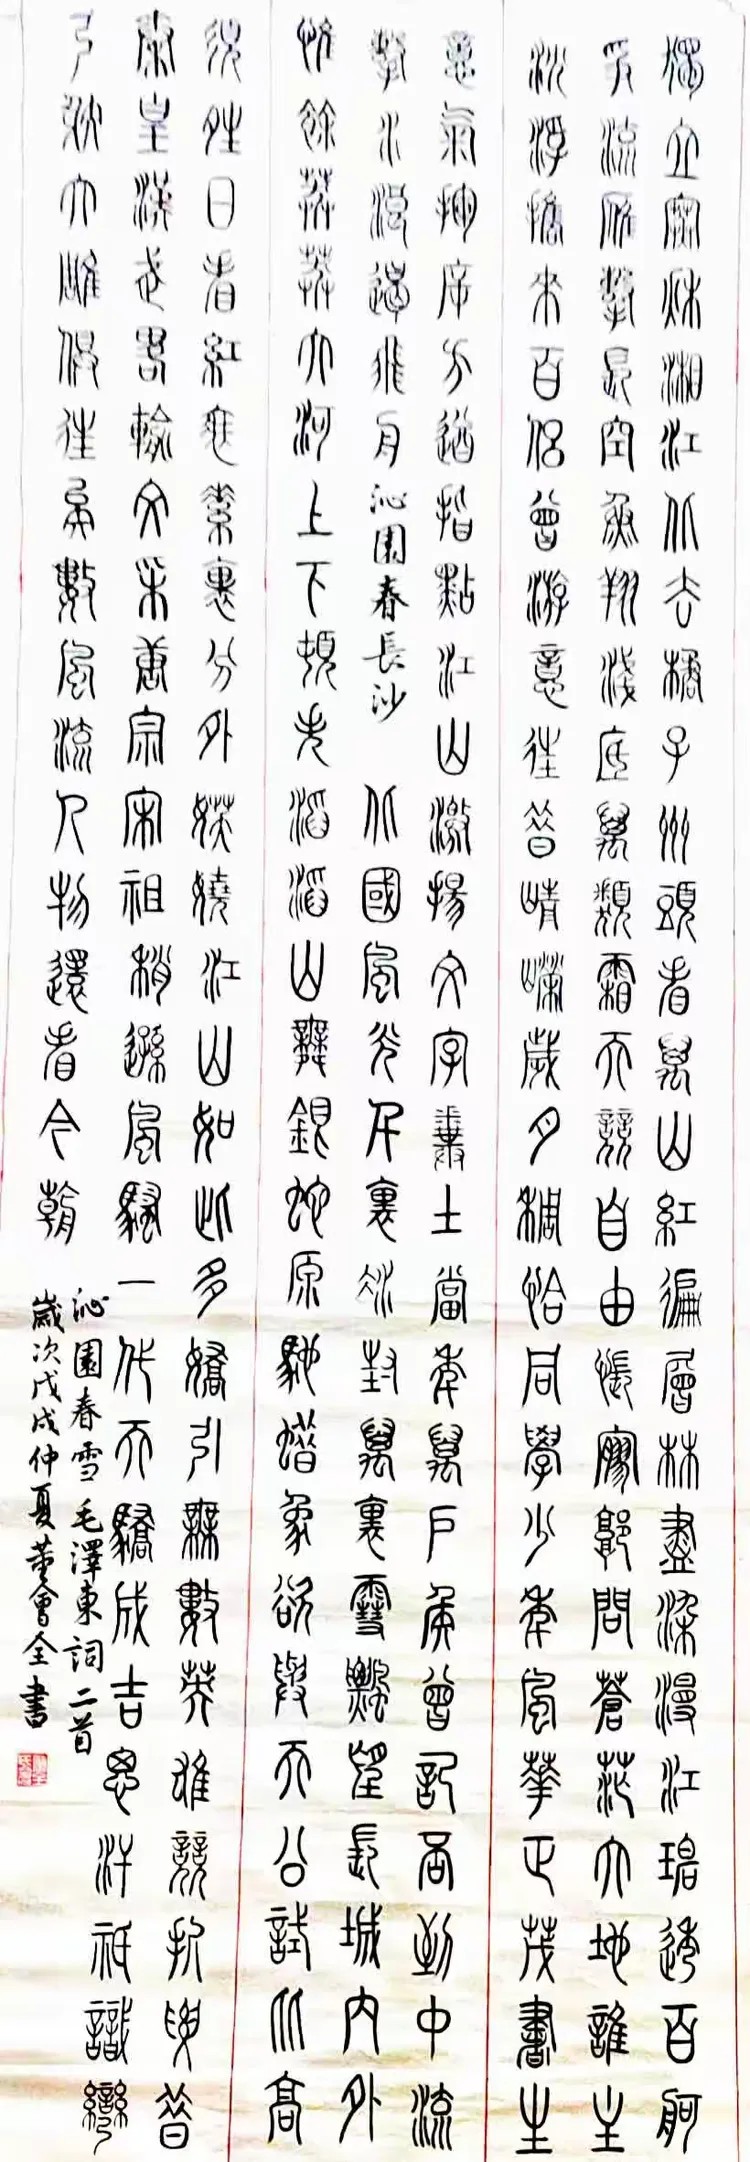 獨立寒秋湘江北去橘子州頭看萬山紅遍層林盡染漫江碧透百舸
爭流鷹擊長空魚翔淺底萬類霜天競自由悵寥郭問蒼茫大地誰主
沉浮攜來百侶曾游憶往昔崢嶸歲月稠恰同學少年風華正茂書生
意氣揮斥方遒指點江山激揚文字糞土當年萬戶侯曾記否到中流
擊水浪遏飛舟 沁園春長沙 北國風光千里冰封萬里雪飄望長城內外
惟餘莽莽大河上下頓失滔滔山舞銀蛇原馳蠟象欲與天公試比高
須晴日看紅妝素裹分外妖嬈江山如此多嬌引無數英雄競折腰昔
秦皇漢武略輸文采唐宗宋祖稍遜風騷一代天驕成吉思汗祇識彎
弓射大雕俱往矣數風流人物還看今朝
沁園春雪 毛澤東詞二首
歲次戊戌仲夏董會全書